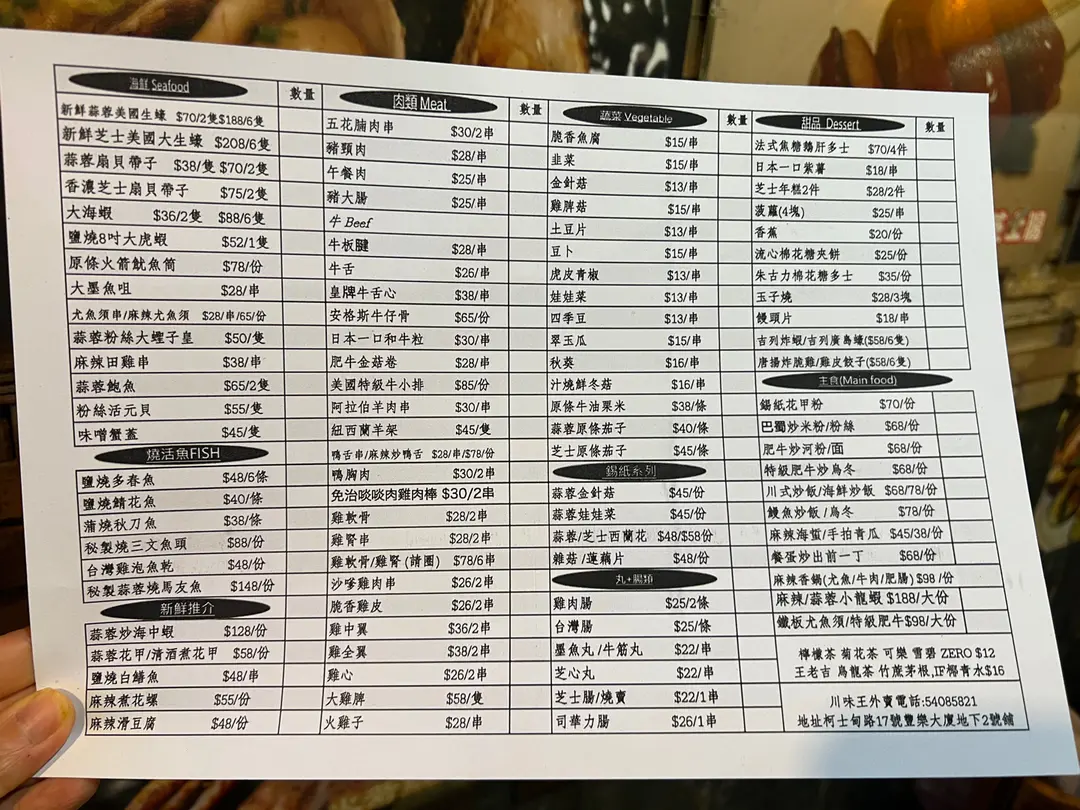 海鮮 Seafood 數量
新鮮蒜蓉美國生蠔 $70/2隻$188/6隻
新鮮芝士美國大生蠔 $208/6隻
蒜蓉扇貝帶子 $38/隻 $70/2隻
香濃芝士扇貝帶子 $75/2隻
大海蝦 $36/2隻 $88/6隻
鹽燒8吋大虎蝦 $52/1隻
原條火箭魷魚筒 $78/份
大墨魚咀 $28/串
尤魚須串/麻辣尤魚須 $28/串/65/份
蒜蓉粉絲大蟶子皇 $50/隻
麻辣田雞串 $38/串
蒜蓉鮑魚 $65/2隻
粉絲活元貝 $55/隻
味噌蟹蓋 $45/隻
燒活魚FISH
鹽燒多春魚 $48/6條
鹽燒鯖花魚 $40/條
蒲燒秋刀魚 $38/條
秘製燒三文魚頭 $88/份
台灣雞泡魚乾 $48/份
秘製蒜蓉燒馬友魚 $148/份
新鮮推介
蒜蓉炒海中蝦 $128/份
蒜蓉花甲/清酒煮花甲 $58/份
鹽燒白鱔魚 $48/串
麻辣煮花螺 $55/份
麻辣滑豆腐 $48/份
肉類 Meat 數量
五花腩肉串 $30/2串
豬頸肉 $28/串
午餐肉 $25/串
豬大腸 $25/串
牛 Beef
牛板腱 $28/串
牛舌 $26/串
皇牌牛舌心 $38/串
安格斯牛仔骨 $65/份
日本一口和牛粒 $30/串
肥牛金菇卷 $28/串
美國特級牛小排 $85/份
阿拉伯羊肉串 $30/串
紐西蘭羊架 $45/隻
鴨舌串/麻辣炒鴨舌 $28/串/$78/份
鴨胸肉 $30/2串
免治啖啖肉雞肉棒 $30/2串
雞軟骨 $28/2串
雞腎串 $28/2串
雞軟骨/雞腎 (請圈) $78/6串
沙嗲雞肉串 $26/2串
脆香雞皮 $26/2串
雞中翼 $36/2串
雞全翼 $38/2串
雞心 $26/2串
大雞脾 $58/隻
火雞子 $28/串
蔬菜 Vegetable 數量
脆香魚腐 $15/串
韭菜 $15/串
金針菇 $13/串
雞脾菇 $15/串
土豆片 $13/串
豆卜 $15/串
虎皮青椒 $13/串
娃娃菜 $13/串
四季豆 $13/串
翠玉瓜 $15/串
秋葵 $16/串
汁燒鮮冬菇 $16/串
原條牛油粟米 $38/條
蒜蓉原條茄子 $40/條
芝士原條茄子 $45/條
錫紙系列
蒜蓉金針菇 $45/份
蒜蓉娃娃菜 $45/份
蒜蓉/芝士西蘭花 $48/$58份
雜菇 /蓮藕片 $48/份
丸+腸類
雞肉腸 $25/2條
台灣腸 $25/條
墨魚丸 /牛筋丸 $22/串
芝心丸 $22/串
芝士腸/燒賣 $22/1串
司華力腸 $26/1串
甜品 Dessert 數量
法式焦糖鵝肝多士 $70/4件
日本一口紫薯 $18/串
芝士年糕2件 $28/2件
菠蘿(4塊) $25/串
香蕉 $20/份
流心棉花糖夾餅 $25/份
朱古力棉花糖多士 $35/份
玉子燒 $28/3塊
饅頭片 $18/串
吉列炸蝦/吉列廣島蠔($58/6隻)
唐揚炸脆雞/雞皮餃子($58/6隻)
主食(Main food)
錫紙花甲粉 $70/份
巴蜀炒米粉/粉絲 $68/份
肥牛炒河粉/面 $68/份
特級肥牛炒烏冬 $68/份
川式炒飯/海鮮炒飯 $68/78/份
鰻魚炒飯 /烏冬 $78/份
麻辣海蜇/手拍青瓜 $45/38/份
餐蛋炒出前一丁 $68/份
麻辣香鍋(尤魚/牛肉/肥腸) $98 /份
麻辣/蒜蓉小龍蝦 $188/大份
鐵板尤魚須/特級肥牛$98/大份
檸檬茶 菊花茶 可樂 雪碧 ZERO $12
王老吉 烏龍茶 竹蔗茅根,IF椰青水$16
川味王外賣電話:54085821
地址柯士甸路17號豐樂大廈地下2號舖